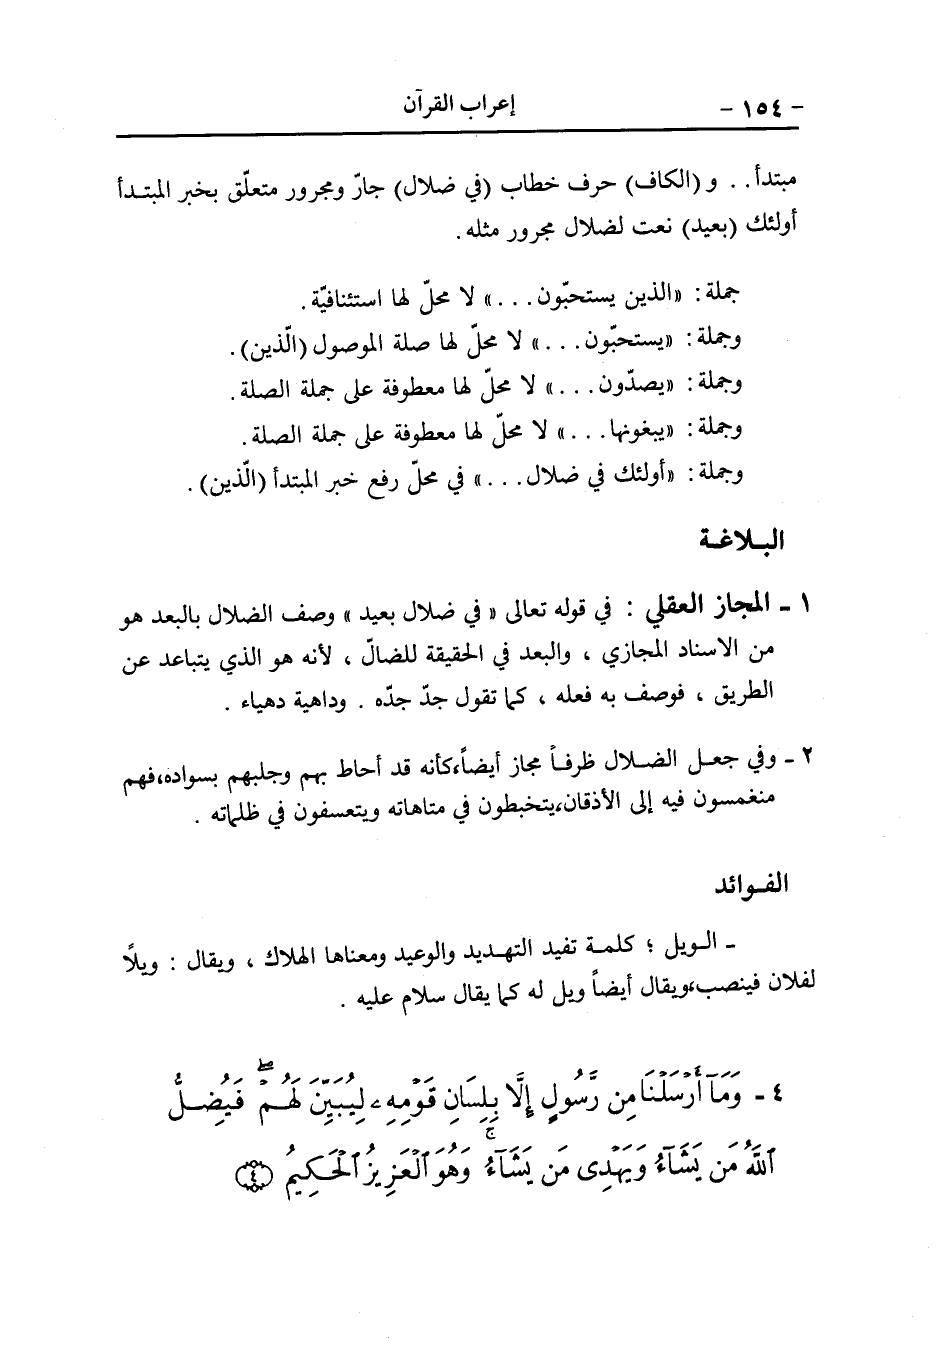 - ١٥٤ - إعراب القرآن
مبتدأ.. و (الكاف) حرف خطاب (في ضلال) جارّ ومجرور متعلّق بخبر المبتدأ
أولئك (بعيد) نعت لضلال مجرور مثله.
جملة: «الذين يستحبّون...» لا محلّ لها استئنافيّة.
وجملة: «يستحبّون...» لا محلّ لها صلة الموصول (الّذين).
وجملة: «يصدّون...» لا محلّ لها معطوفة على جملة الصلة.
وجملة: «يبغونها...» لا محلّ لها معطوفة على جملة الصلة.
وجملة: «أولئك في ضلال...» في محلّ رفع خبر المبتدأ (الّذين).
البـلاغـة
١ - المجاز العقلي : في قوله تعالى « في ضلال بعيد » وصف الضلال بالبعد هو
من الاسناد المجازي ، والبعد في الحقيقة للضالّ ، لأنه هو الذي يتباعد عن
الطريق ، فوصف به فعله ، كما تقول جدّ جدّه . وداهية دهياء .
٢ - وفي جعـل الضـلال ظرفـاً مجاز أيضاً،كأنه قد أحاط بهم وجلبهم بسواده،فهم
منغمسون فيه إلى الأذقان،يتخبطون في متاهاته ويتعسفون في ظلماته .
الفـوائد
- الـويل ؛ كلمـة تفيد التهـديد والوعيد ومعناها الهلاك ، ويقال : ويلاً
لفلان فينصب،ويقال أيضاً ويل له كما يقال سلام عليه .
٤ - وَمَآ أَرْسَلْنَا مِن رَّسُولٍ إِلَّا بِلِسَانِ قَوْمِهِۦ لِيُبَيِّنَ لَهُمْۖ فَيُضِلُّ
ٱللَّهُ مَن يَشَآءُ وَيَهْدِى مَن يَشَآءُۚ وَهُوَ ٱلْعَزِيزُ ٱلْحَكِيمُ ﴿٤﴾